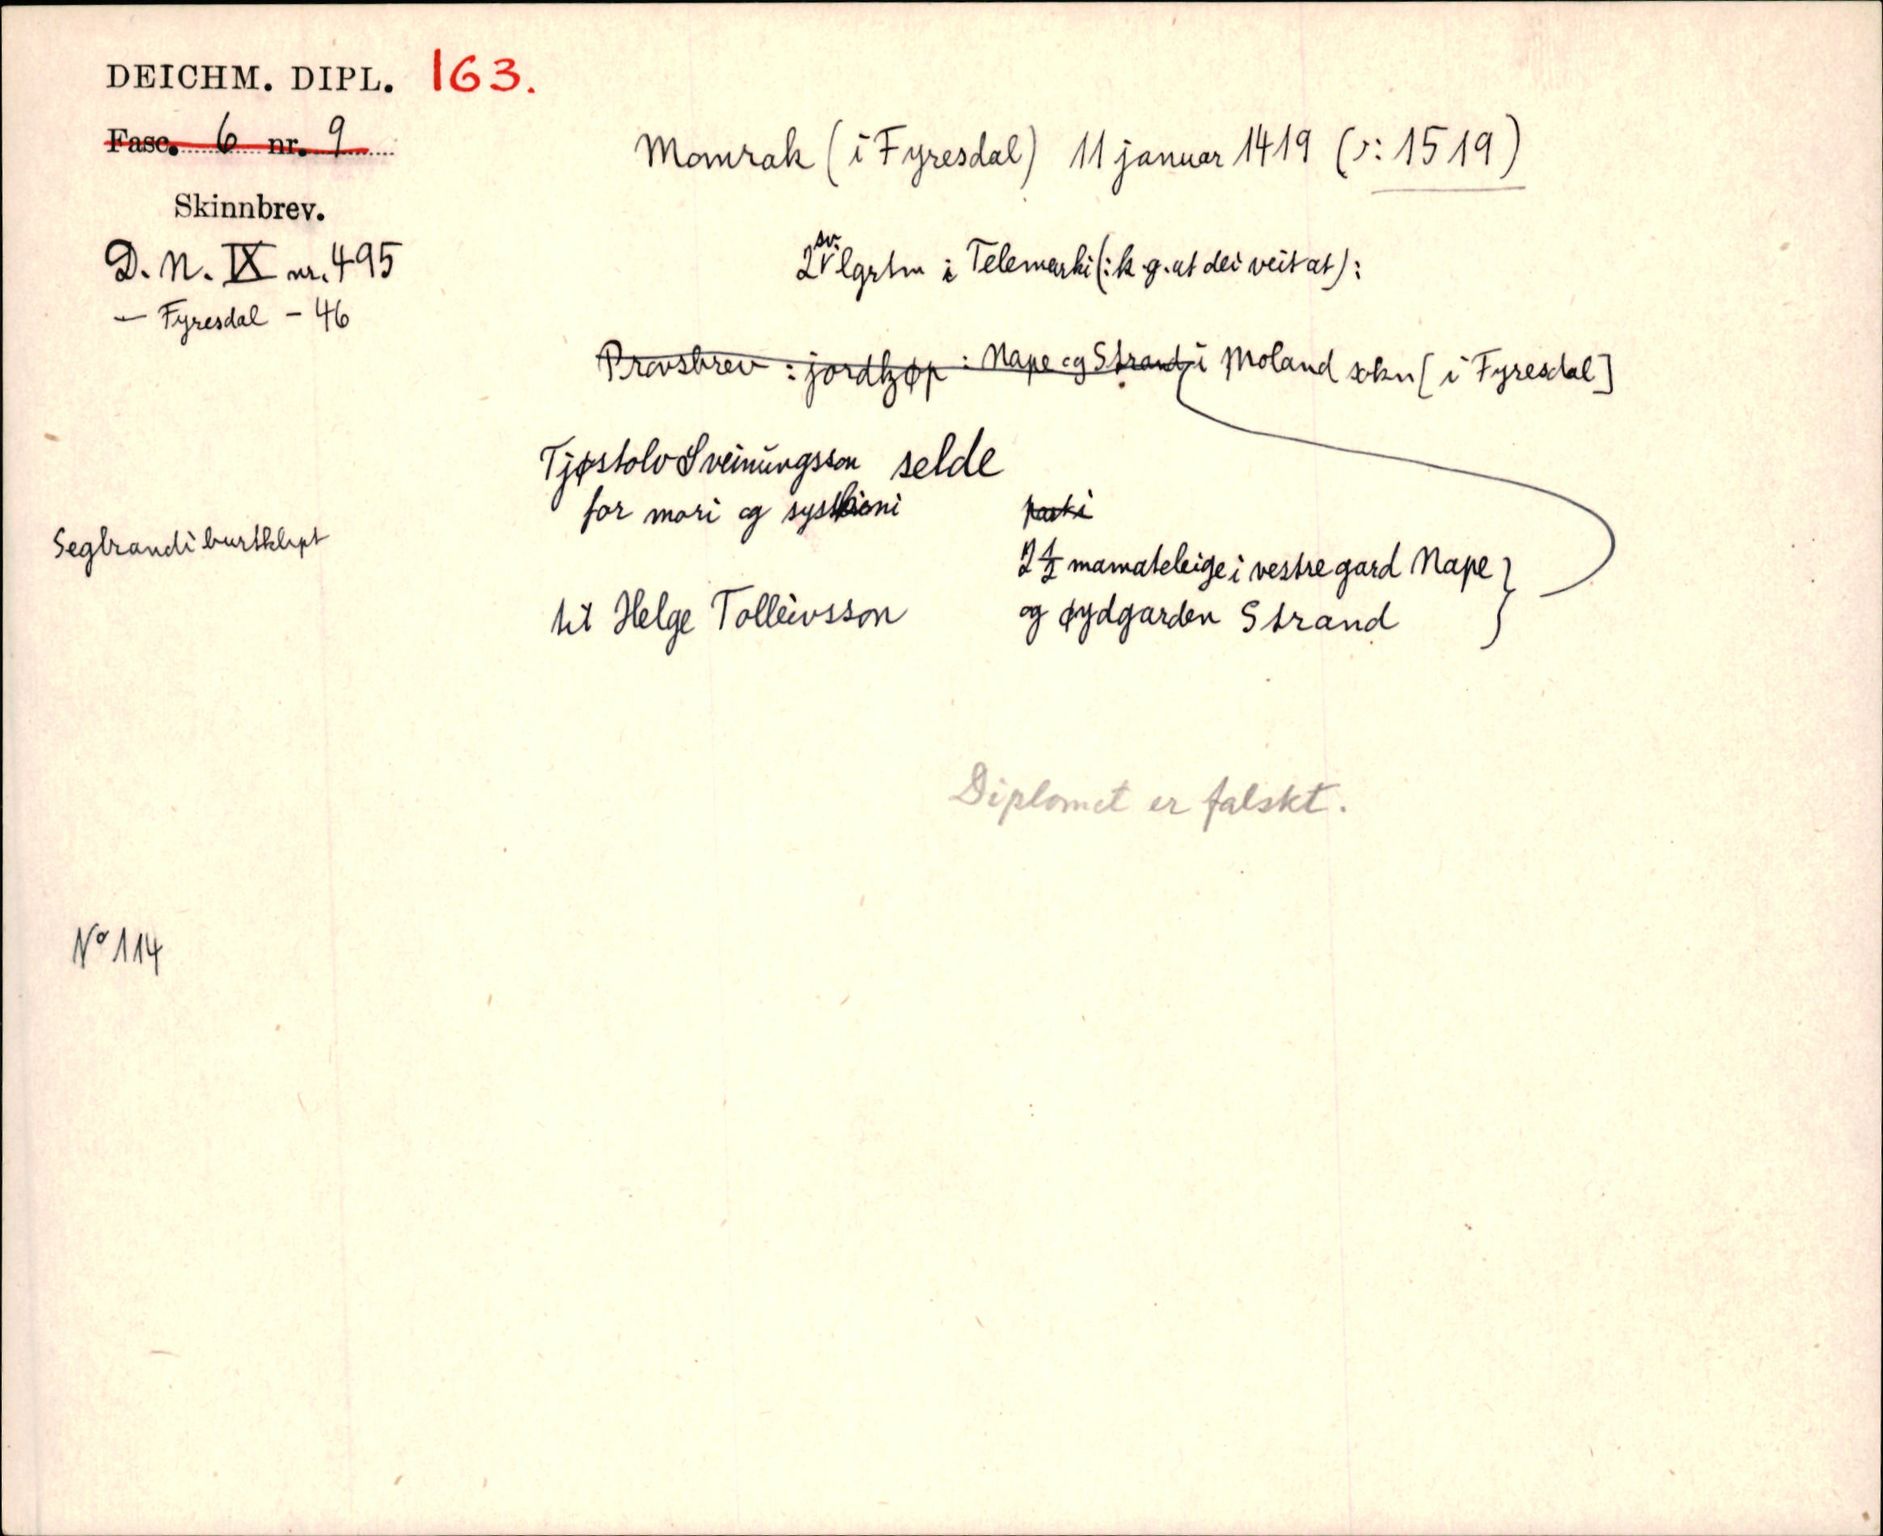 DEICHM. DIPL. 163.
Fasc. 6 nr. 9
Skinnbrev.
D. N. IX nr. 495
— Fyresdal - 46
Momrak (i Fyresdal) 11 januar 1419 (ɔ: 1519)
2 sv. lgrtm i Telemarki (: k. g. at dei veit at):
Provsbrev : jordkjøp : Nape og Strand i Moland sokn [i Fyresdal]
Tjøstolv Sveinungsson selde
for mori og syskioni
parti
2 1/2 mamateleige i vestre gard Nape
og øydgarden Strand
til Helge Tolleivsson
Seglrandi burtklipt
Diplomet er falskt.
Nº 114